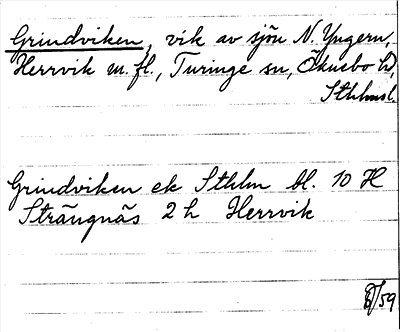 Grindviken, vik av sjön N. Yngern,
Herrvik m. fl., Turinge sn, Öknebo hd,
Sthlmsl.
Grindviken ek Sthlm bl. 10 H
Strängnäs 2 h Herrvik
/59